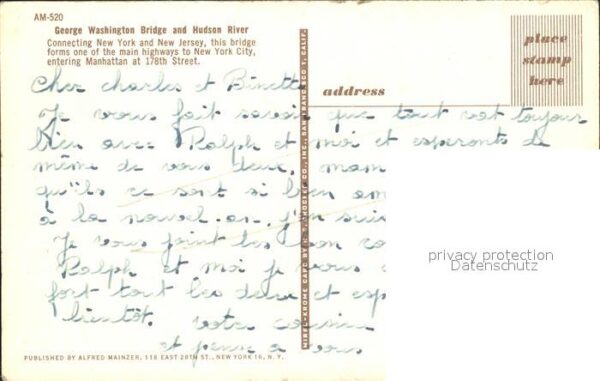 AM-520
George Washington Bridge and Hudson River
Connecting New York and New Jersey, this bridge
forms one of the main highways to New York City,
entering Manhattan at 178th Street.
place
stamp
here
address
Cher Charles et Binette
Je vous fait savoir que tout vat toujour
bien avec Ralph et moi et esperonts de
même de vous deux. mam
qu'ils ce sont si bien am
à la nouvel-an. j'en suis
Je vous joint les bon
Ralph et moi je vous
fort tout les deux et esp
bientôt. votre cousine
et pense a vous
privacy protection
Datenschutz
PUBLISHED BY ALFRED MAINZER, 118 EAST 28TH ST., NEW YORK 16, N.Y.